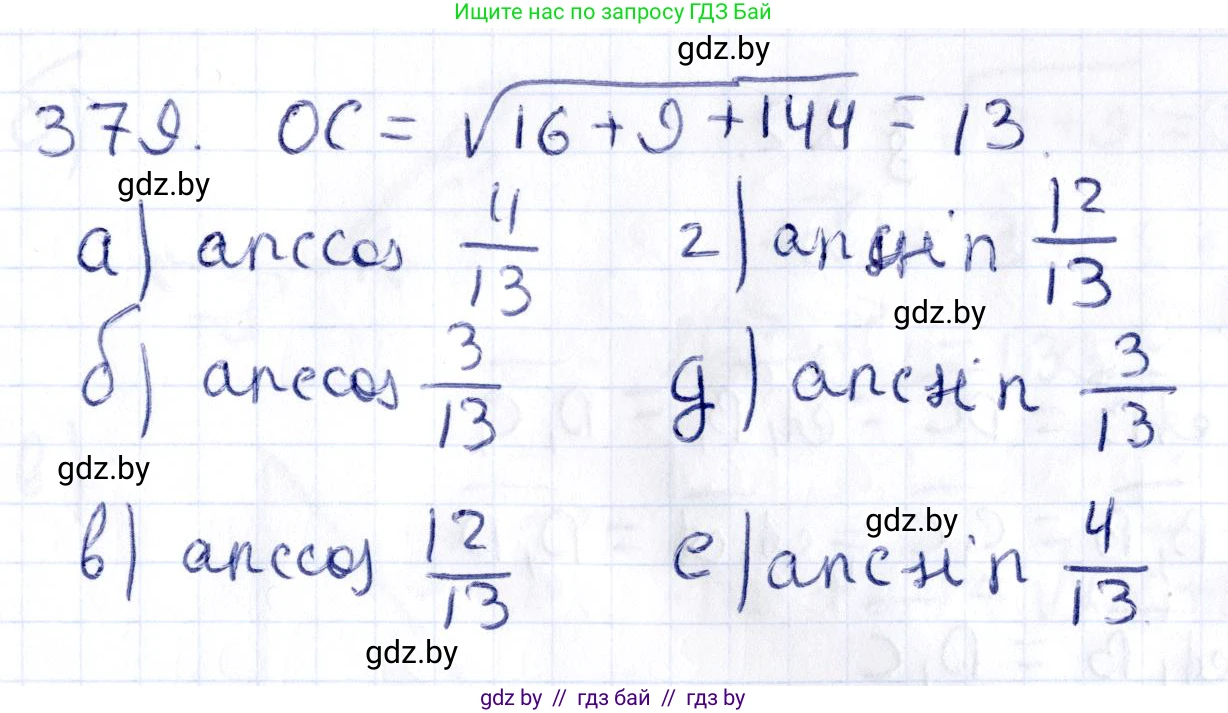 Ищите нас по запросу ГДЗ Бай
gdz.by
379. OC = √(16 + 9 + 144) = 13.
gdz.by
а) arccos 4/13 г) arcsin 12/13
gdz.by
б) arccos 3/13 д) arcsin 3/13
gdz.by
gdz.by
в) arccos 12/13 е) arcsin 4/13
gdz.by
gdz by // гдз бай // гдз by